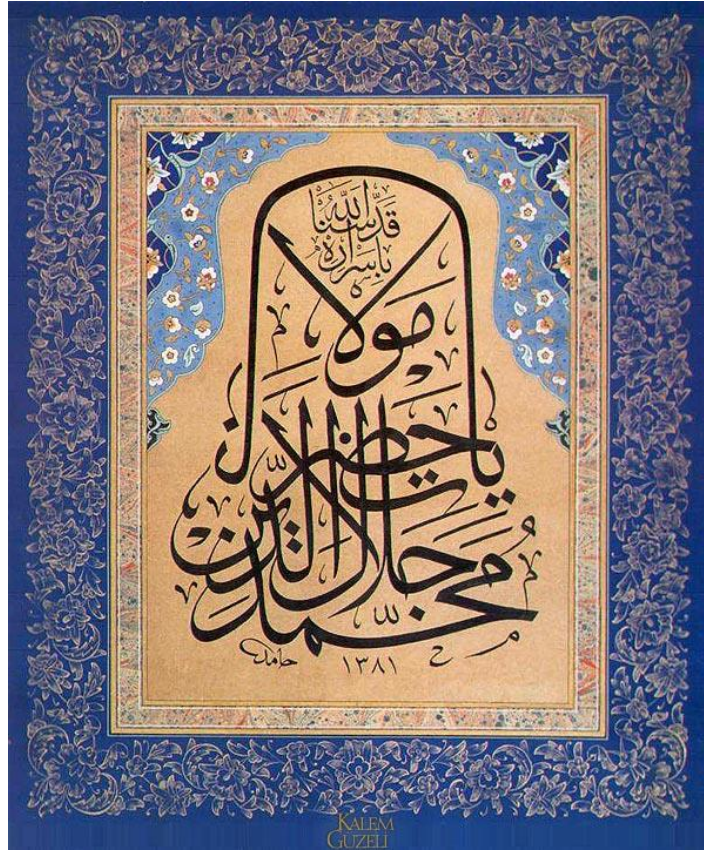 قدسنا الله
باسراره
يا حضرت مولانا
محمد جلال الدين
حامد ١٣٨١
KALEM
GUZELI